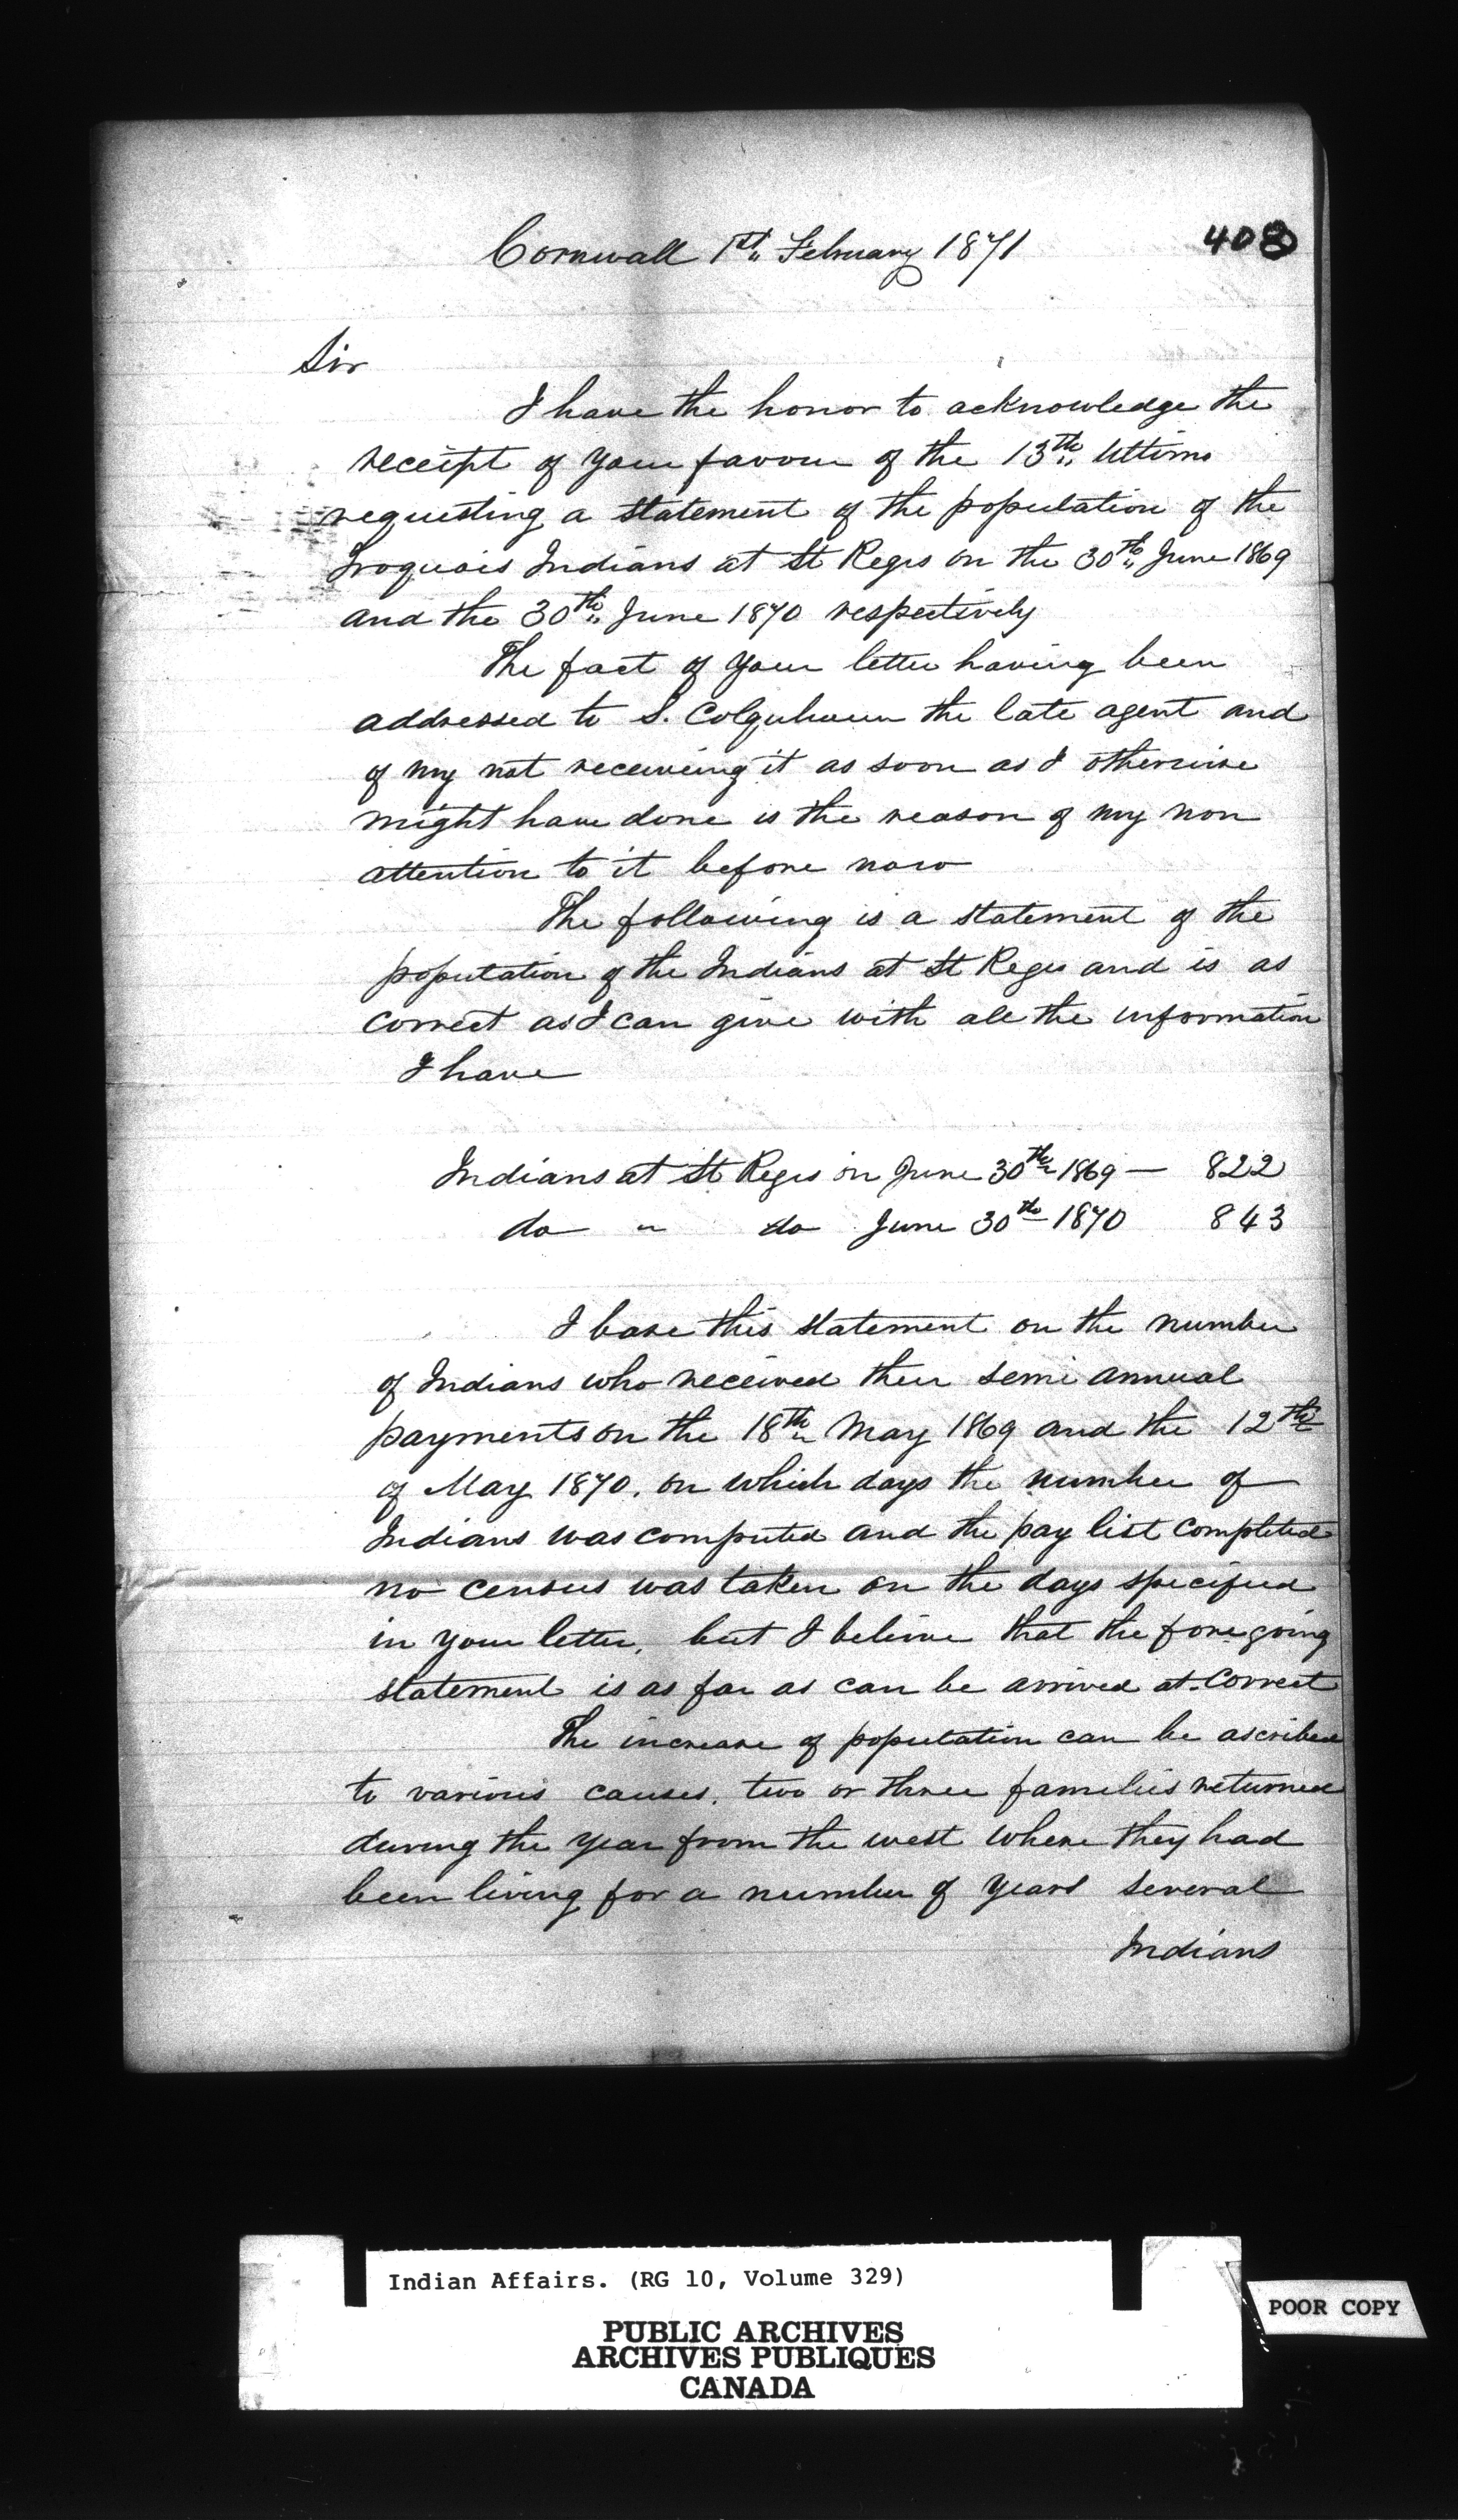 408
Cornwall 1st February 1871
Sir
I have the honor to acknowledge the
receipt of your favour of the 13th Ultimo
requesting a statement of the population of the
Iroquois Indians at St Regis on the 30th June 1869
and the 30th June 1870 respectively
The fact of your letter having been
addressed to S. Colquhoun the late agent and
of my not receiving it as soon as I otherwise
might have done is the reason of my non
attention to it before now
The following is a statement of the
population of the Indians at St Regis and is as
correct as I can give with all the information
I have
Indians at St Regis on June 30th 1869 — 822
do " do June 30th 1870 843
I base this statement on the number
of Indians who received their semi annual
payments on the 18th May 1869 and the 12th
of May 1870. on which days the number of
Indians was computed and the pay list completed
no census was taken on the days specified
in your letter, but I believe that the foregoing
statement is as far as can be arrived at correct
The increase of population can be ascribed
to various causes. two or three families returned
during the year from the west where they had
been living for a number of years several
Indians
Indian Affairs. (RG 10, Volume 329)
PUBLIC ARCHIVES
ARCHIVES PUBLIQUES
CANADA
POOR COPY